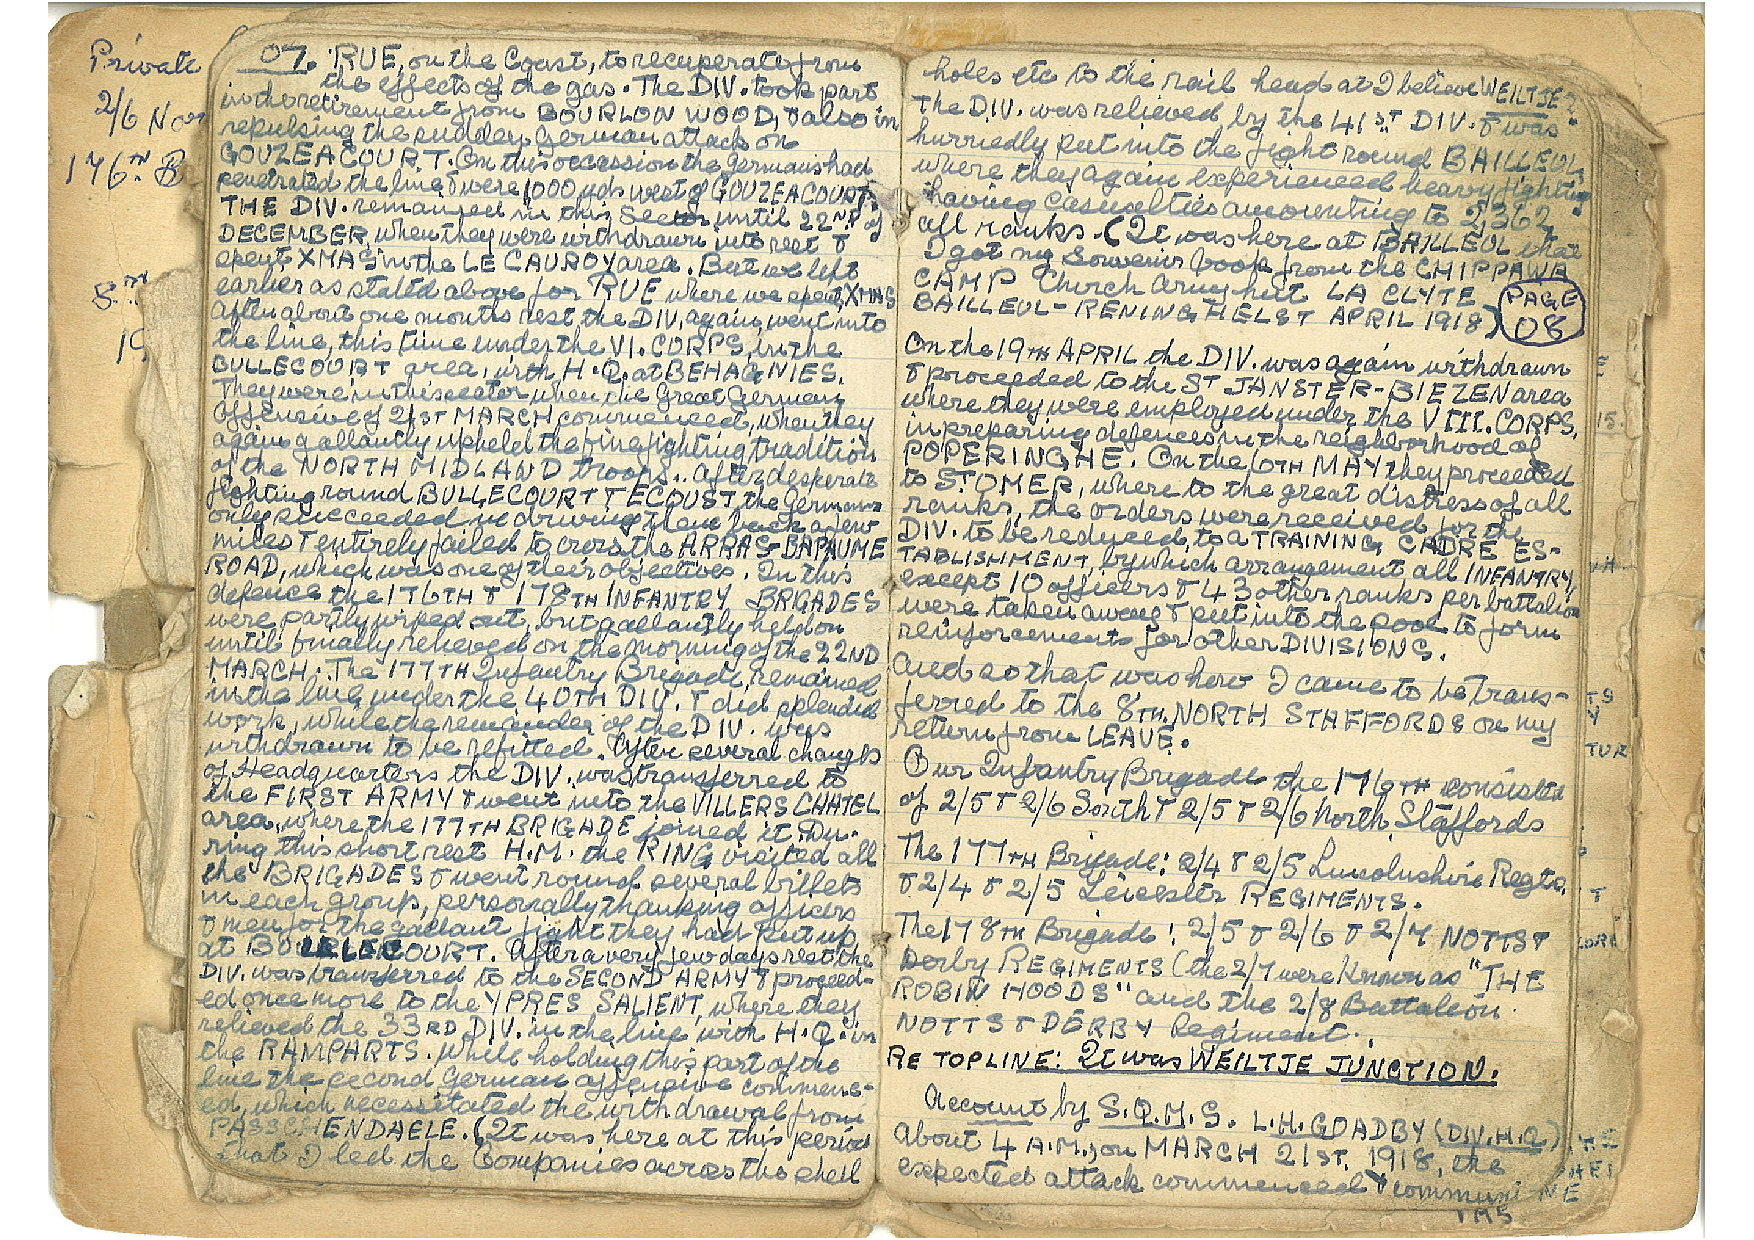 Private
2/6 Nor
176TH B
07. RUE, on the Coast, to recuperate from
the effects of the gas. The DIV. took part
in the retirement from BOURLON WOOD, & also in
repulsing the sudden German attack on
GOUZEACOURT. On this occassion the Germans had
penetrated the line & were 1000 yds west of GOUZEACOURT.
THE DIV. remained in this Sector until 22ND of
DECEMBER, when they were withdrawn into rest &
spent XMAS in the LE CAUROY area. But we left
earlier as stated above for RUE where we spent XMAS
After about one months rest the DIV, again, went into
the line, this time under the VI. CORPS, in the
BULLECOURT area, with H.Q. at BEHAGNIES.
They were in this sector when the Great German
Offensive of 21ST MARCH commenced, when they
again gallantly upheld the fine fighting tradition
of the NORTH MIDLAND troops. After desperate
fighting round BULLECOURT & ECOUST the Germans
only succeeded in driving them back a few
miles & entirely failed to cross the ARRAS-BAPAUME
ROAD, which was one of their objectives. In this
defence the 176TH & 178TH INFANTRY BRIGADES
were partly wiped out, but gallantly held on
until finally relieved on the morning of the 22ND
MARCH. The 177TH Infantry Brigade, remained
in the line under the 40TH DIV. & did splendid
work, while the remainder of the DIV. was
withdrawn to be refitted. After several changes
of Headquarters the DIV. was transferred to
the FIRST ARMY & went into the VILLERS CHATEL
area, where the 177TH BRIGADE joined it. Du-
ring this short rest H.M. the KING visited all
the BRIGADES & went round several billets
in each group, personally thanking officers
& men for the gallant fight they had put up
at BULLECOURT. After a very few days rest, the
DIV. was transferred to the SECOND ARMY & proceed-
ed once more to the YPRES SALIENT, where they
relieved the 33RD DIV. in the line with H.Q. in
the RAMPARTS. While holding this part of the
line the second German offensive commenc-
ed, which necessitated the withdrawal from
PASSCHENDAELE. (It was here at this period
that I led the Companies across the shell
holes etc to the rail head at I believe WEILTJE?
The DIV. was relieved by the 41ST DIV. & was
hurriedly put into the fight round BAILLEUL,
where they again experienced heavy fighting
having casualties amounting to 2,362,
all ranks. (It was here at BAILLEUL that
I got my Souvenir book from the CHIPPAWA
CAMP Church Army hut LA CLYTE
BAILLEUL-RENINGHELST APRIL 1918)
PAGE
08
On the 19TH APRIL the DIV. was again withdrawn
& proceeded to the ST JANSTER-BIEZEN area
where they were employed under the VIII. CORPS,
in preparing defences in the neighborhood of
POPERINGHE. On the 6TH MAY they proceeded
to ST.OMER, where to the great distress of all
ranks, the orders were received for the
DIV. to be reduced, to a TRAINING CADRE ES-
TABLISHMENT, by which arrangement, all INFANTRY
except 10 officers & 43 other ranks per battalion
were taken away & put into the pool to form
reinforcements for other DIVISIONS.
And so that was how I came to be trans-
ferred to the 8TH. NORTH STAFFORDS on my
return from LEAVE.
Our Infantry Brigade the 176TH consisted
of 2/5 & 2/6 South & 2/5 & 2/6 North Staffords
The 177TH Brigade: 2/4 & 2/5 Lincolnshire Regts,
& 2/4 & 2/5 Leicester REGIMENTS.
The 178TH Brigade: 2/5 & 2/6 & 2/7 NOTTS &
Derby REGIMENTS (the 2/7 were known as "THE
ROBIN HOODS" and the 2/8 Battalion
NOTTS & DERBY Regiment.
RE TOPLINE: It was WEILTJE JUNCTION.
Account by S.Q.M.S. L.H. GOADBY (DIV.H.Q.)
About 4 A.M., on MARCH 21ST. 1918, the
expected attack commenced & communi